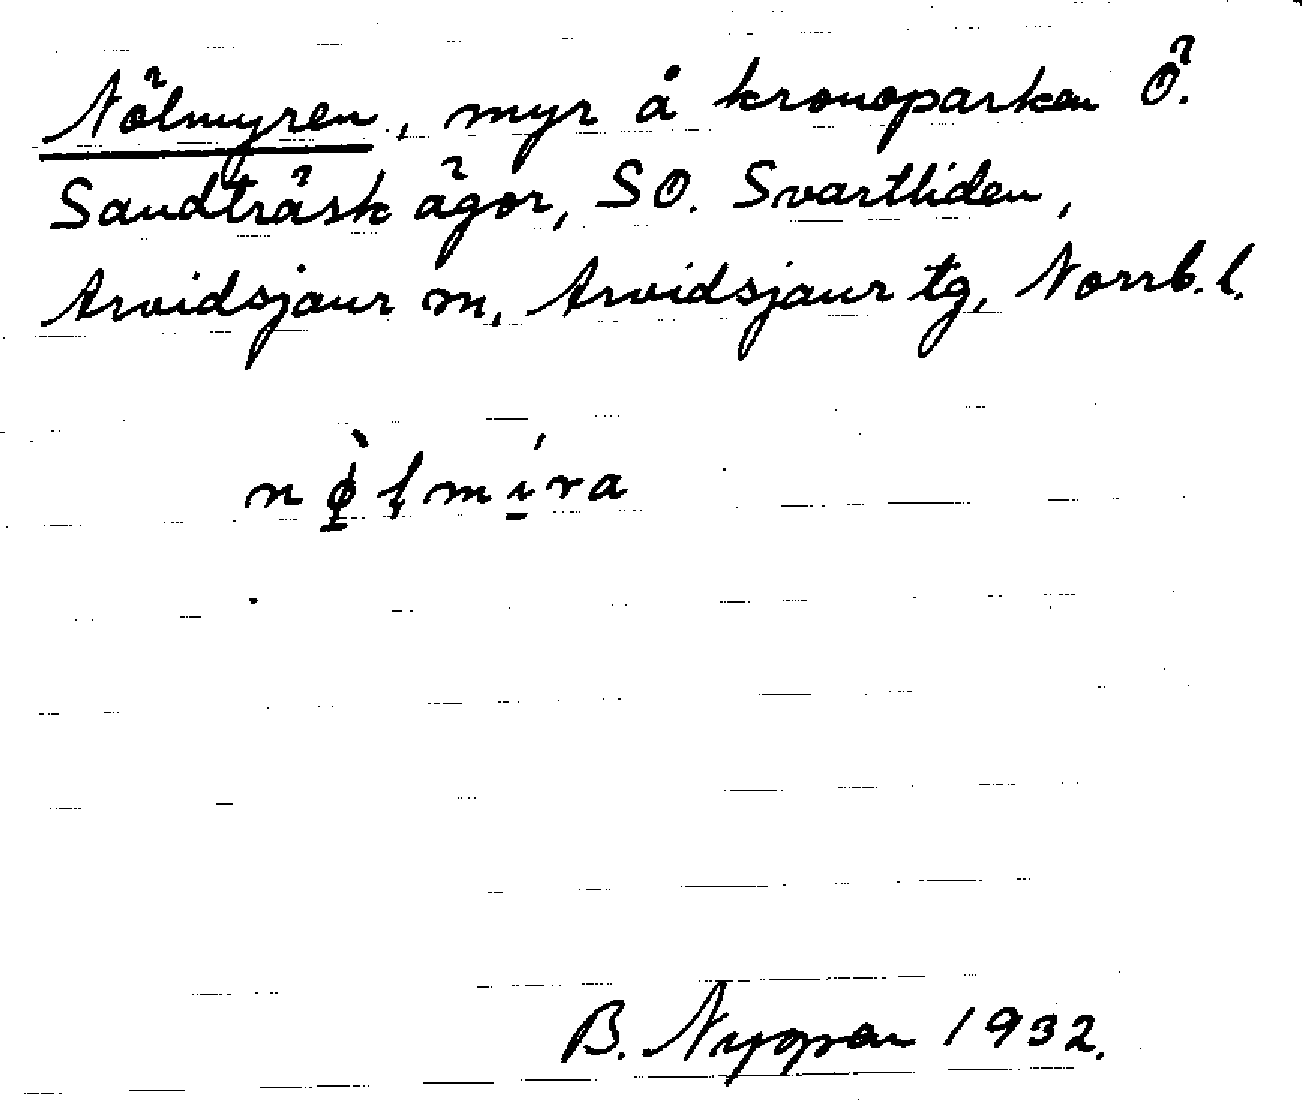 Nölmyren, myr å kronoparken Ö.
Sandträsk ägor, SO. Svartliden,
Arvidsjaur sn, Arvidsjaur tg, Norrb. l.
nø̀lmíra
B. Nygren 1932.